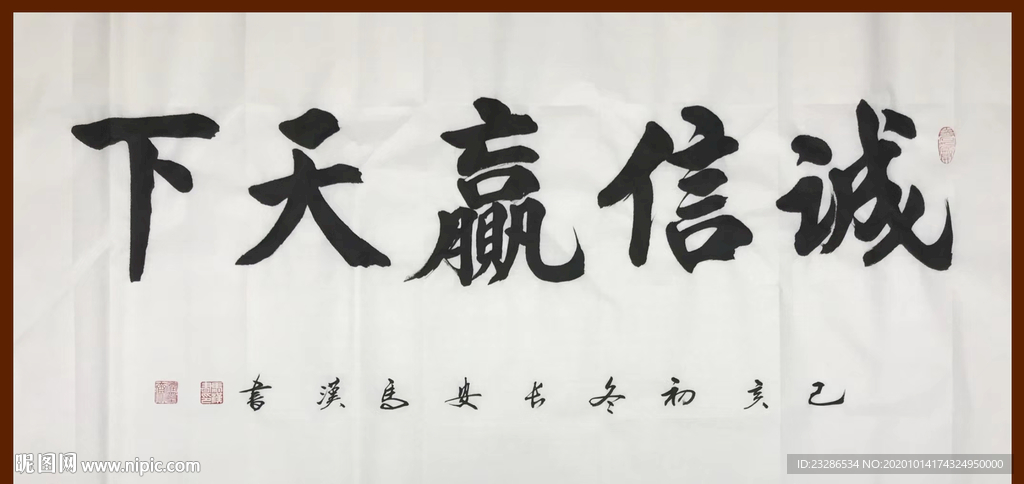 诚信赢天下
己亥初冬长安马汉书
昵图网 www.nipic.com
ID:23286534 NO:20201014174324950000